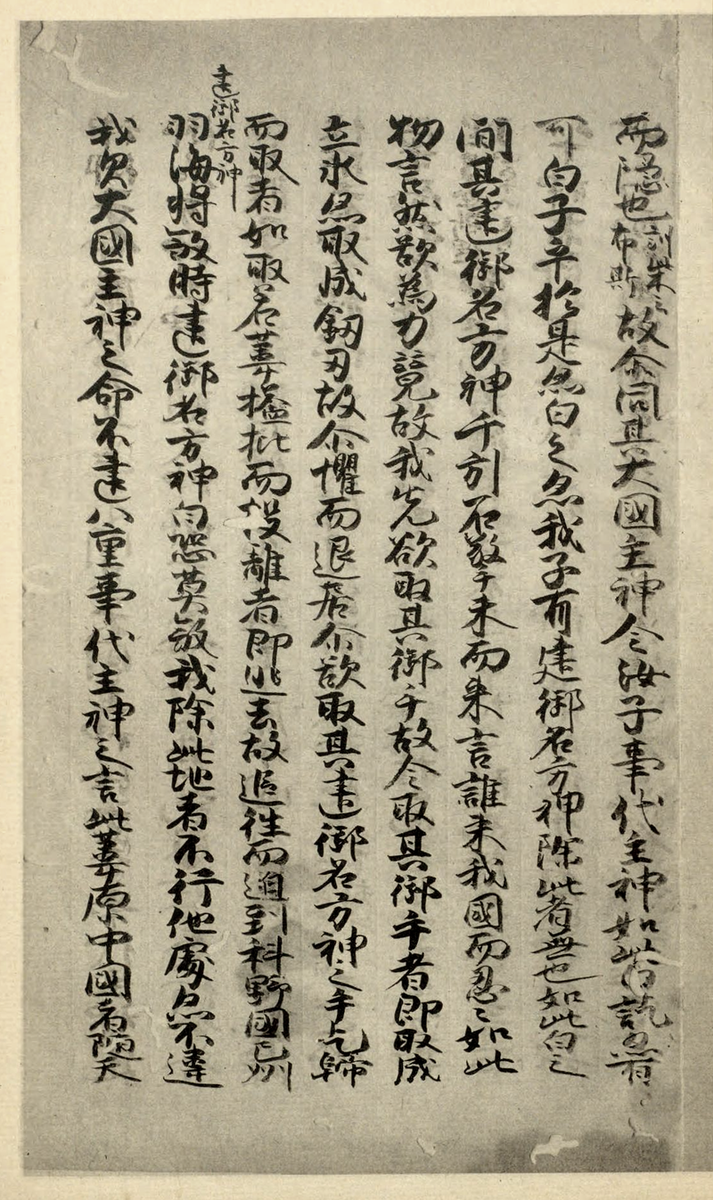 而隠也訓柴云布斯故尒問其大國主神今汝子事代主神如此白訖亦有
可白子乎於是亦白之亦我子有建御名方神除此者無也如此白之
間其建御名方神千引石擎手末而来言誰来我國而忍〻如此
物言然欲為力競故我先欲取其御手故令取其御手者即取成
立氷亦取成釼刃故尒懼而退居尒欲取其建御名方神之手乞歸
而取者如取若葦搤批而投離者即逃去故追往而迫到科野國之州
建御名方神
羽海将敘時建御名方神白恐莫敘我除此地者不行他處亦不違
我父大國主神之命不違八重事代主神之言此葦原中國者随天